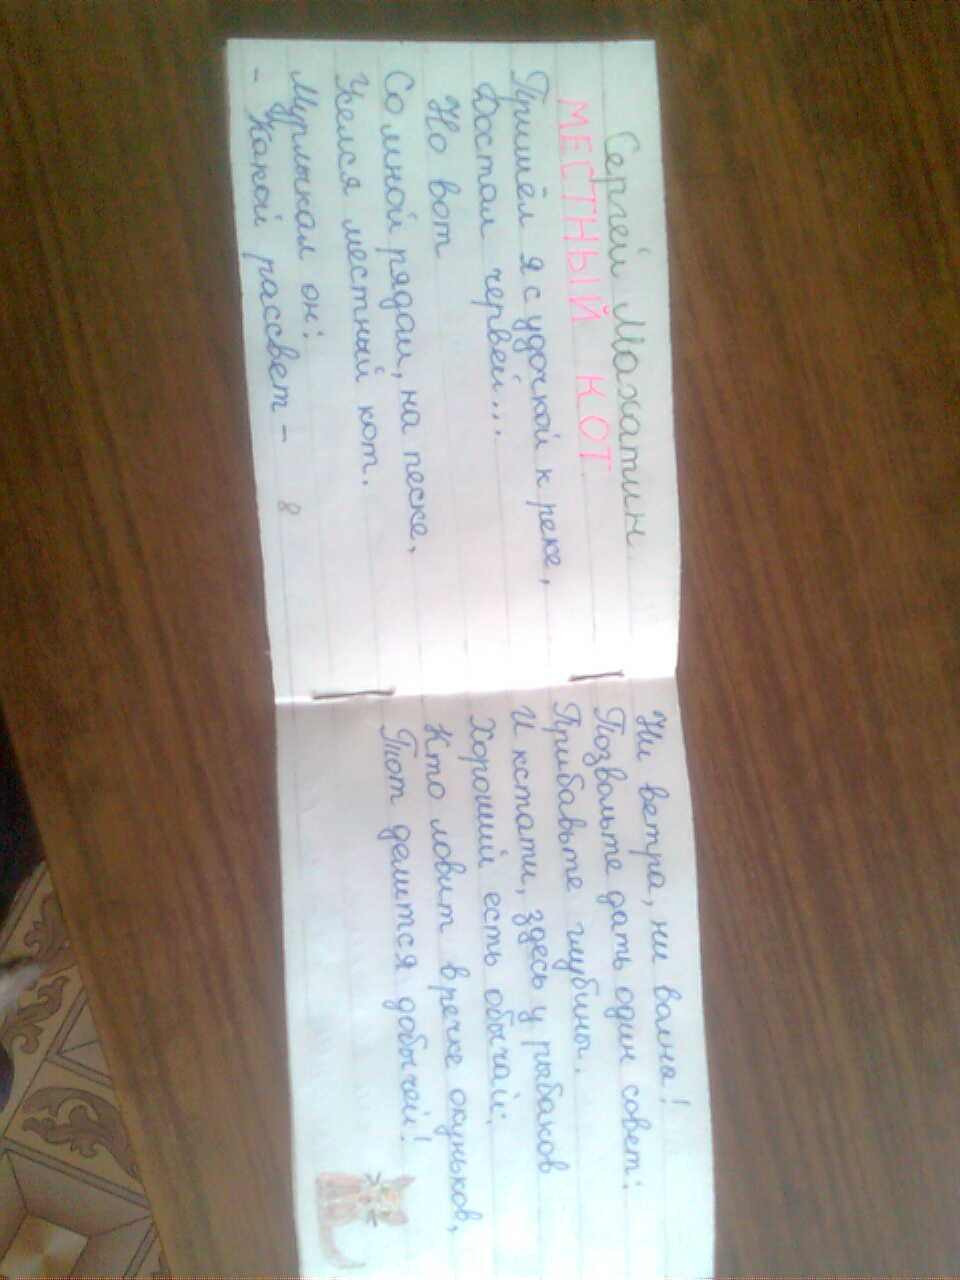 Сергей Махотин
МЕСТНЫЙ КОТ.
Пришёл я с удочкой к реке,
Достал червей...
Но вот
Со мной рядом, на песке,
Уселся местный кот.
Мурлыкал он:
- Какой рассвет -
8
Ни ветра, ни волны!
Позвольте дать один совет:
Прибавьте глубины.
И кстати, здесь у рыбаков
Хороший есть обычай:
Кто ловит в речке окуньков,
Тот делится добычей!